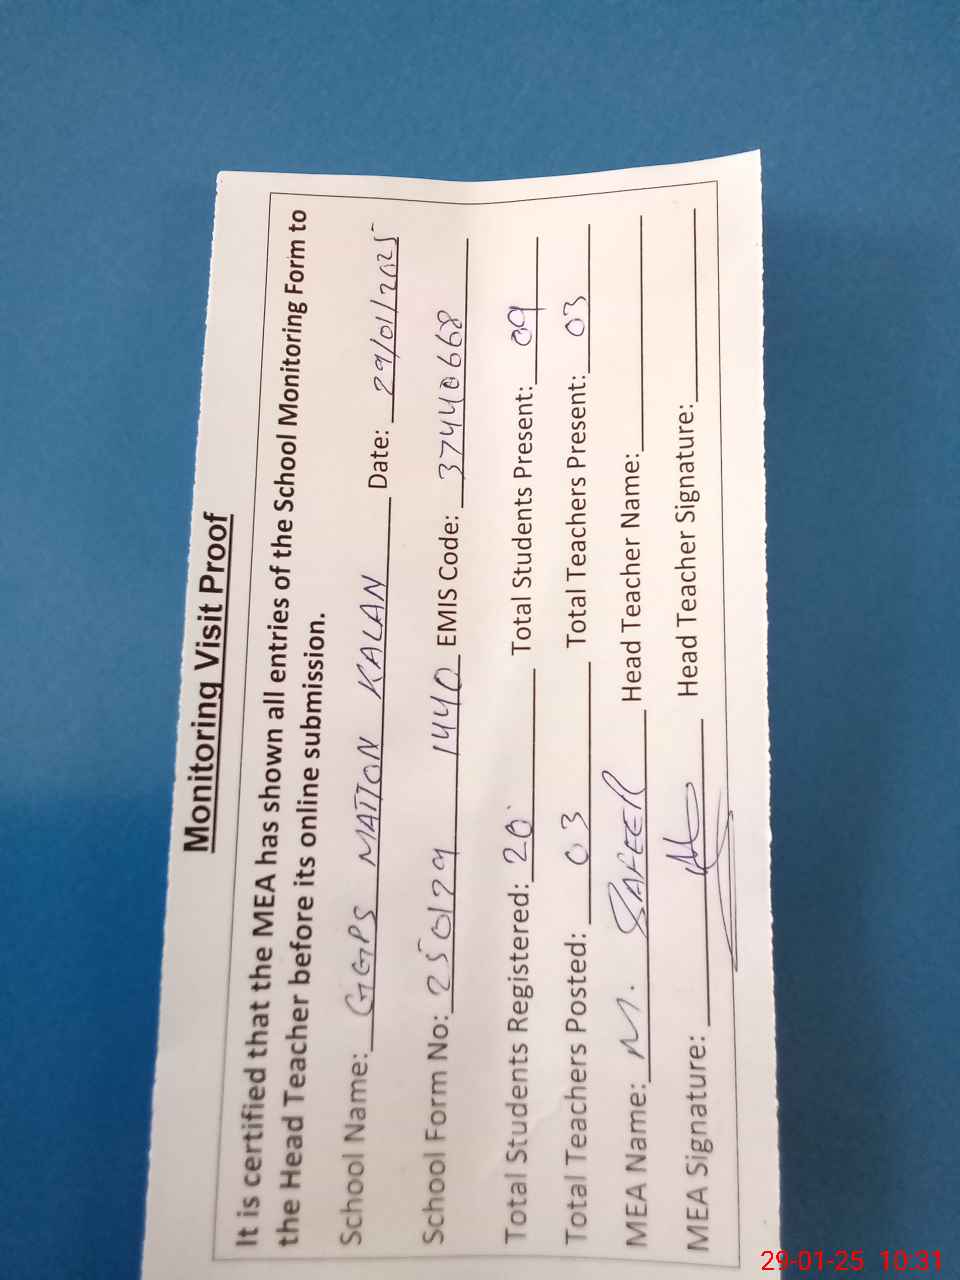 Monitoring Visit Proof
It is certified that the MEA has shown all entries of the School Monitoring Form to
the Head Teacher before its online submission.
School Name: GGPS MATTON KALAN Date: 29/01/2025
School Form No: 250129 1440 EMIS Code: 37440668
Total Students Registered: 20 Total Students Present: 09
Total Teachers Posted: 03 Total Teachers Present: 03
MEA Name: M. SAFEER Head Teacher Name:
MEA Signature: Head Teacher Signature:
29-01-25 10:31